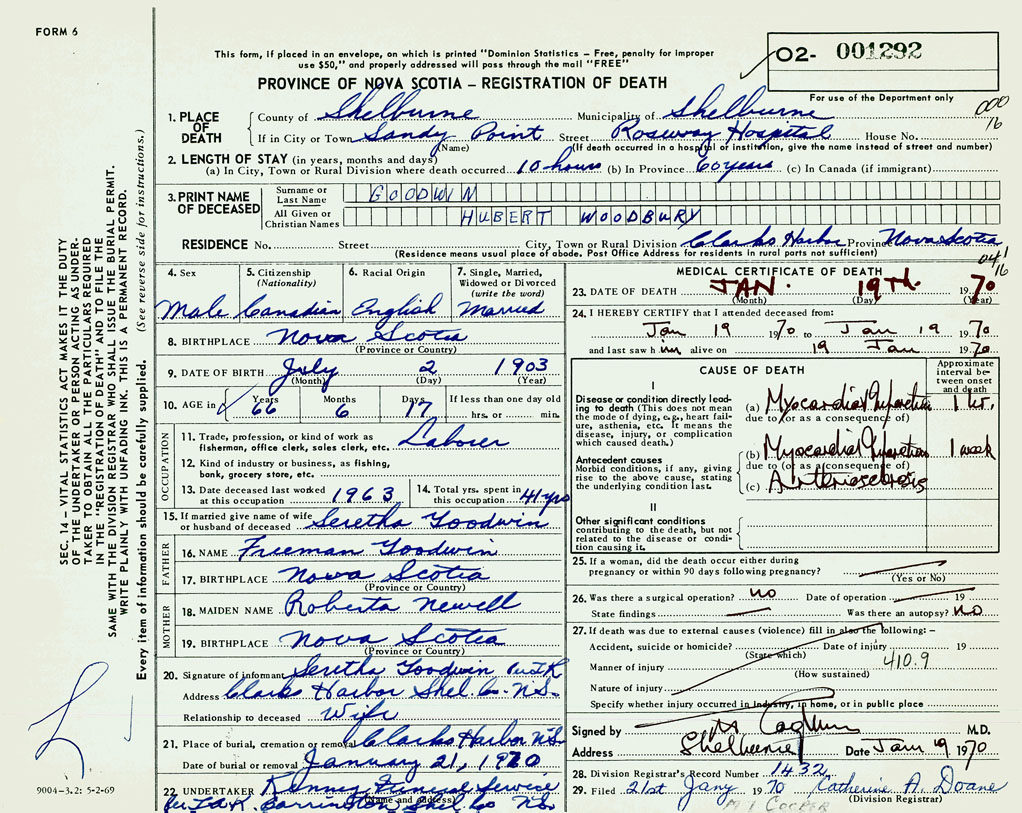 FORM 6
This form, if placed in an envelope, on which is printed "Dominion Statistics – Free, penalty for improper
use $50," and properly addressed will pass through the mail "FREE"
O2- 001292
For use of the Department only
PROVINCE OF NOVA SCOTIA – REGISTRATION OF DEATH
000
16
1. PLACE OF DEATH
County of Shelburne Municipality of Shelburne
If in City or Town Sandy Point Street Roseway Hospital House No.
(Name) (If death occurred in a hospital or institution, give the name instead of street and number)
2. LENGTH OF STAY (in years, months and days)
(a) In City, Town or Rural Division where death occurred 10 hours (b) In Province 60 years (c) In Canada (if immigrant)
3. PRINT NAME OF DECEASED
Surname or Last Name GOODWIN
All Given or Christian Names HUBERT WOODBURY
RESIDENCE No. Street City, Town or Rural Division Clarks Harbor Province Nova Scotia
(Residence means usual place of abode. Post Office Address for residents in rural parts not sufficient)
041
16
4. Sex Male
5. Citizenship (Nationality) Canadian
6. Racial Origin English
7. Single, Married, Widowed or Divorced (write the word) Married
8. BIRTHPLACE Nova Scotia
(Province or Country)
9. DATE OF BIRTH July 2 1903
(Month) (Day) (Year)
10. AGE in Years 66 Months 6 Days 17 If less than one day old hrs. or min.
OCCUPATION
11. Trade, profession, or kind of work as Laborer
fisherman, office clerk, sales clerk, etc.
12. Kind of industry or business, as fishing,
bank, grocery store, etc.
13. Date deceased last worked at this occupation 1963
14. Total yrs. spent in this occupation 41 yrs
15. If married give name of wife or husband of deceased Seretha Goodwin
FATHER
16. NAME Freeman Goodwin
17. BIRTHPLACE Nova Scotia
(Province or Country)
MOTHER
18. MAIDEN NAME Roberta Newell
19. BIRTHPLACE Nova Scotia
(Province or Country)
20. Signature of informant Seretha Goodwin
Address Clarks Harbor Shel. Co. N.S.
Relationship to deceased Wife
21. Place of burial, cremation or removal Clarks Harbor N.S.
Date of burial or removal January 21, 1970
22. UNDERTAKER Kenny Funeral Service
(Name and address) Barrington Shel. Co N.S.
MEDICAL CERTIFICATE OF DEATH
23. DATE OF DEATH JAN. 19th. 1970
(Month) (Day) (Year)
24. I HEREBY CERTIFY that I attended deceased from:
Jan 19 1970 to Jan 19 1970
and last saw him alive on 19 Jan 1970
CAUSE OF DEATH
Approximate interval between onset and death
I
Disease or condition directly leading to death (This does not
mean the mode of dying, e.g., heart failure, asthenia, etc. It means the
disease, injury, or complication which caused death.)
(a) Myocardial Infarction 1 hr.
due to (or as a consequence of)
Antecedent causes
Morbid conditions, if any, giving rise to the above cause, stating
the underlying condition last.
(b) Myocardial Infarction 1 week
due to (or as a consequence of)
(c) Arteriosclerosis
II
Other significant conditions
contributing to the death, but not
related to the disease or condition causing it.
25. If a woman, did the death occur either during
pregnancy or within 90 days following pregnancy?
(Yes or No)
26. Was there a surgical operation? no Date of operation 19
State findings Was there an autopsy? No
27. If death was due to external causes (violence) fill in also the following: –
Accident, suicide or homicide? Date of injury 19
(State which)
Manner of injury 410.9
(How sustained)
Nature of injury
Specify whether injury occurred in industry, in home, or in public place
Signed by M.D.
Address Shelburne Date Jan 19 1970
28. Division Registrar's Record Number 1432
29. Filed 21st Jany 1970 Katherine A. Doane
(Division Registrar)
M I COOPER
SEC. 14 – VITAL STATISTICS ACT MAKES IT THE DUTY
OF THE UNDERTAKER OR PERSON ACTING AS UNDER-
TAKER TO OBTAIN ALL THE PARTICULARS REQUIRED
IN THE "REGISTRATION OF DEATH" AND TO FILE THE
SAME WITH THE DIVISION REGISTRAR WHO SHALL ISSUE THE BURIAL PERMIT.
WRITE PLAINLY WITH UNFADING INK. THIS IS A PERMANENT RECORD.
Every item of information should be carefully supplied. (See reverse side for instructions.)
9004-3.2: 5-2-69